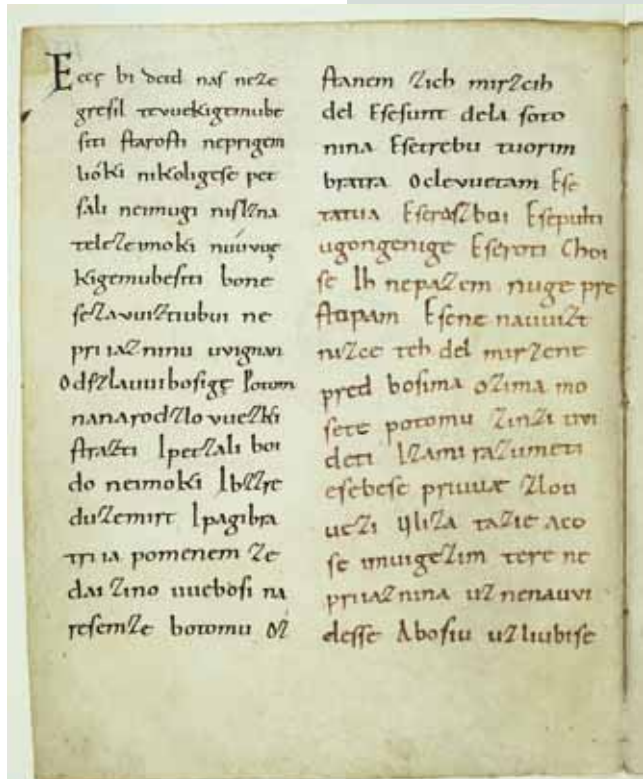 Eccę bi detd naſ neze
greſil tevuekigemube
ſiti ſtaroſti neprigem
lióki nikoligeſe pet
ſali neimugi niſlzna
telezeimoki nuúvuę
kigemubeſiti bone
ſezavuiztiubui ne
priiazninu uvignan
Odſzlauuiboſigę Potom
nanarodzlovuezki
ſtrazti Ipetzali boi
do neimoki Ibzzre
duzemirt Ipagibra
triia pomenem ze
dai zino uueboſi na
reſemze botomu oz
ſtanem zich mirzcih
del Eſeſunt dela ſoto
nina Eſetrebu tuorim
bratra Oclevuetam Eſe
tatua Eſeraſzboi Eſepulti
ugongenige Eſeroti Choi
ſe Ih nepazem nuge pre
ſtopam Eſene nauuizt
nizce teh del mirzene
pred boſima ozima mo
ſete potomu zinzi uvi
deti Izami razumeti
eſebeſe priuuæ zlou
uezi Uliza tazie aco
ſe imuigezim tere ne
priiaznina uznenauvi
deſſe Aboſiu uzliubiſe